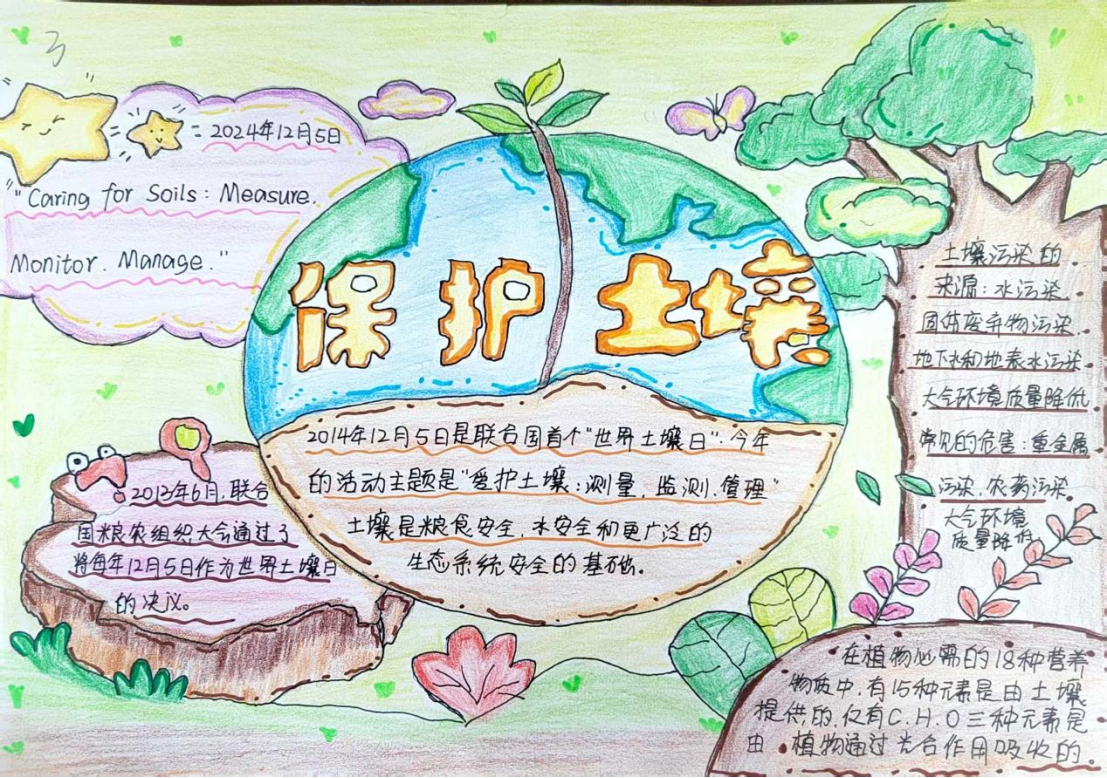 3
2024年12月5日
"Caring for Soils: Measure.
Monitor. Manage."
保护土壤
2014年12月5日是联合国首个"世界土壤日".今年
的活动主题是"爱护土壤:测量.监测.管理"
土壤是粮食安全.水安全和更广泛的
生态系统安全的基础.
2013年6月.联合
国粮农组织大会通过了
将每年12月5日作为世界土壤日
的决议。
土壤污染的
来源:水污染
固体废弃物污染
地下水和地表水污染
大气环境质量降低
常见的危害:重金属
污染.农药污染
大气环境
质量降低
在植物必需的18种营养
物质中.有15种元素是由土壤
提供的.仅有C.H.O三种元素是
由植物通过光合作用吸收的.